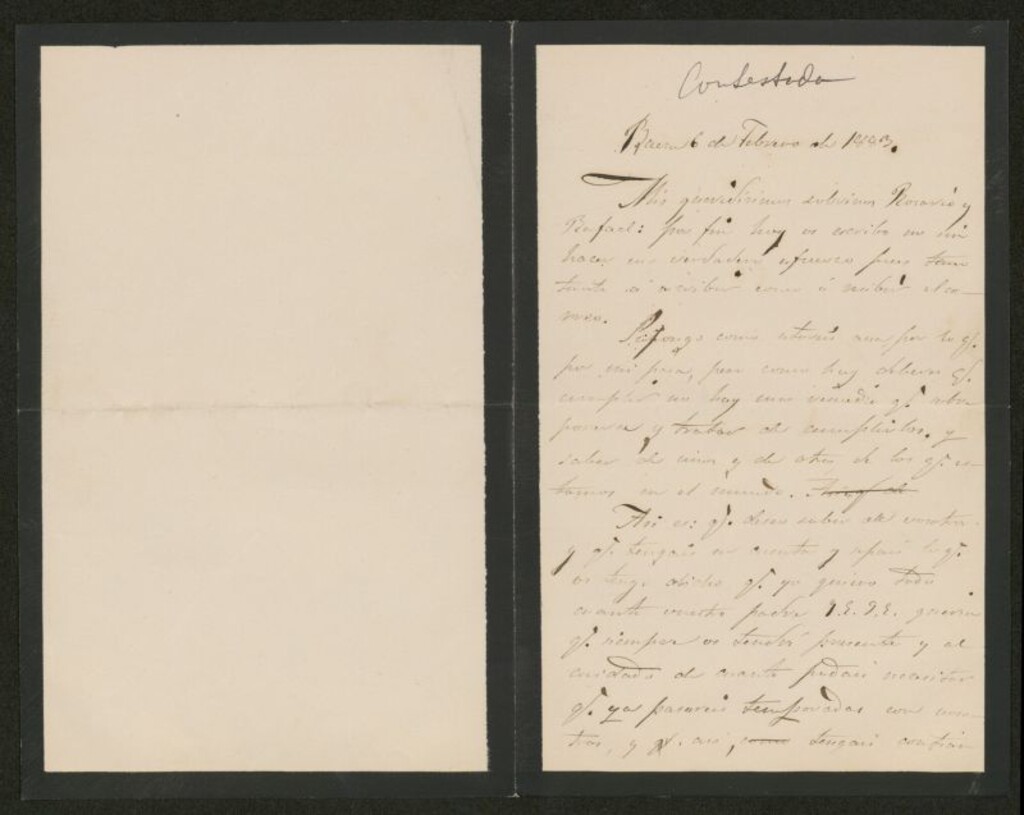 Contestada
Baena 6 de Febrero de 1883.
Mis queridisimos sobrinos Rosario y
Rafael: por fin hoy os escribo
hacer un verdadero esfuerzo pues
á escribir como á recibir el co-
rreo.
Supongo como estareis por lo q.
por mi pasa, pero como hay deberes q.
cumplir no hay mas remedio q.
y tratar de cumplirlos, y
saber de unos y de otros de los q. es-
tamos en el mundo.
Asi es: q. deseo saber de vosotros
y q. tengais en cuenta y sepais lo q.
os tengo dicho q. yo quiero todo
cuanto vuestro padre q.
q. siempre os tendré presente y al
cuidado de cuanto podais necesitar
q. ya pasareis temporadas con noso-
tros, y q. asi, tengais